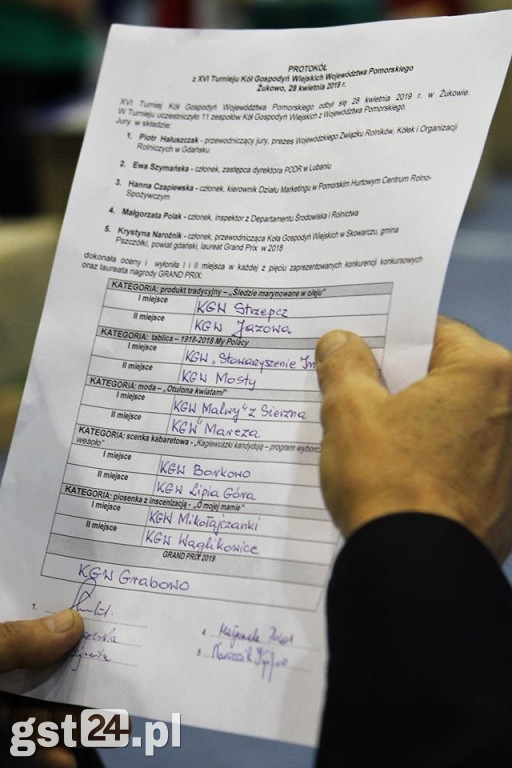 PROTOKÓŁ
z XVI Turnieju Kół Gospodyń Wiejskich Województwa Pomorskiego
Żukowo, 28 kwietnia 2019 r.
XVI Turniej Kół Gospodyń Województwa Pomorskiego odbył się 28 kwietnia 2019 r. w Żukowie.
W Turnieju uczestniczyło 11 zespołów Kół Gospodyń Wiejskich z Województwa Pomorskiego
Jury w składzie:
1. Piotr Hałuszczak - przewodniczący jury, prezes Wojewódzkiego Związku Rolników, Kółek i Organizacji
Rolniczych w Gdańsku
2. Ewa Szymańska - członek, zastępca dyrektora PODR w Lubaniu
3. Hanna Czapiewska - członek, kierownik Działu Marketingu w Pomorskim Hurtowym Centrum Rolno-
Spożywczym
4. Małgorzata Polak - członek, inspektor z Departamentu Środowiska i Rolnictwa
5. Krystyna Naroźnik - członek, przewodnicząca Koła Gospodyń Wiejskich w Skowarczu, gmina
Pszczółki, powiat gdański, laureat Grand Prix w 2018
dokonała oceny i wyłoniła I i II miejsca w każdej z pięciu zaprezentowanych konkurencji konkursowych
oraz laureata nagrody GRAND PRIX:
KATEGORIA: produkt tradycyjny – „Śledzie marynowane w oleju"
I miejsce KGW Strzepcz
II miejsce KGW Jazowa
KATEGORIA: tablica – 1918-2018 My Polacy
I miejsce KGW „Stowarzyszenie
II miejsce KGW Mosty
KATEGORIA: moda – „Otulona kwiatami"
I miejsce KGW Malwy" z Sierzna
II miejsce KGW Mareza
KATEGORIA: scenka kabaretowa - „Kagiewuszki kandydują – program wyborcz
wesoło"
I miejsce KGW Borkowo
II miejsce KGW Lipia Góra
KATEGORIA: piosenka z inscenizacją - „O mojej mamie"
I miejsce KGW Mikołajczanki
II miejsce KGW Wąglikowice
GRAND PRIX 2019
KGW Grabowo
1.
4. Małgorzata Polak
5.
gst24.pl